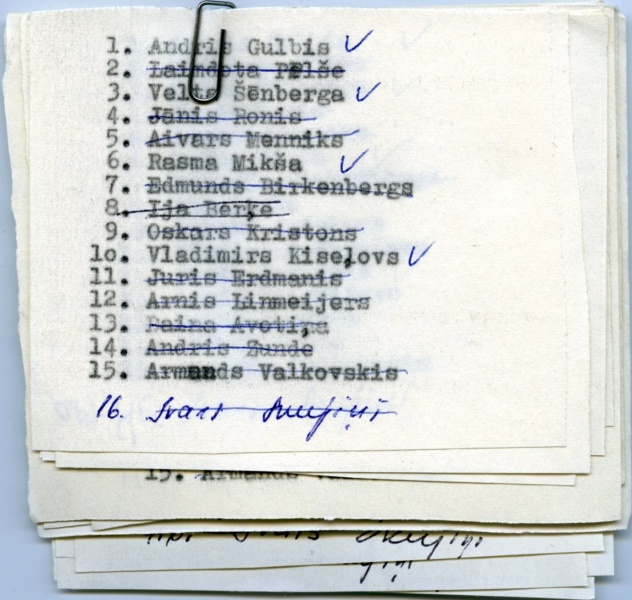 1. Andris Gulbis
2. Laimdota Pelše
3. Velta Šēnberga
4. Jānis Ronis
5. Aivars Menniks
6. Rasma Mikša
7. Edmunds Birkenbergs
8. Ija Berķe
9. Oskars Kristons
lo. Vladimirs Kiseļovs
11. Juris Erdmanis
12. Arnis Linmeijers
13. Daina Avotiņa
14. Andris Zunde
15. Armands Valkovskis
16. Ivars
15. Armands